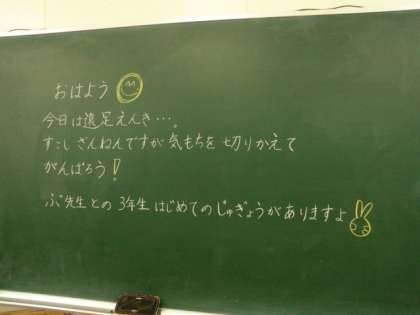 おはよう
今日は遠足えんき・・・。
すこしざんねんですが気もちを切りかえて
がんばろう！
ぶ先生との3年生はじめてのじゅぎょうがありますよ